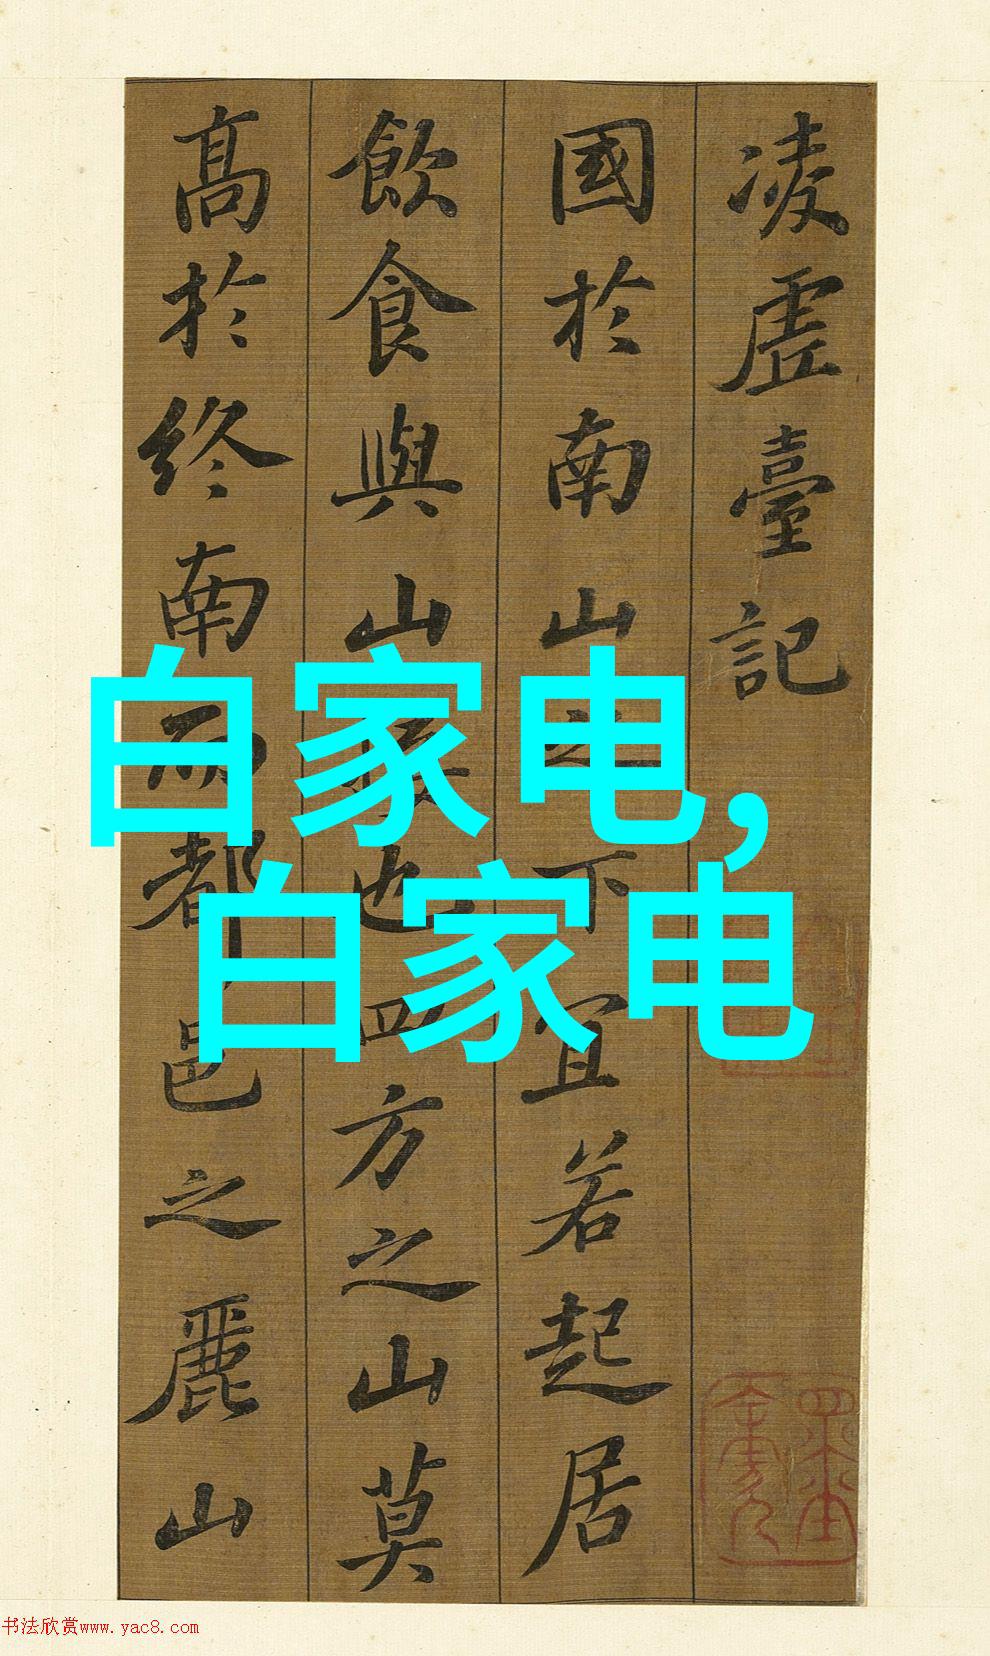 凌虛臺記
國於南山之下宜若起居
飲食與山接也四方之山莫
高於終南而都邑之麗山
白家电,
白家电
书法欣赏www.yac8.com